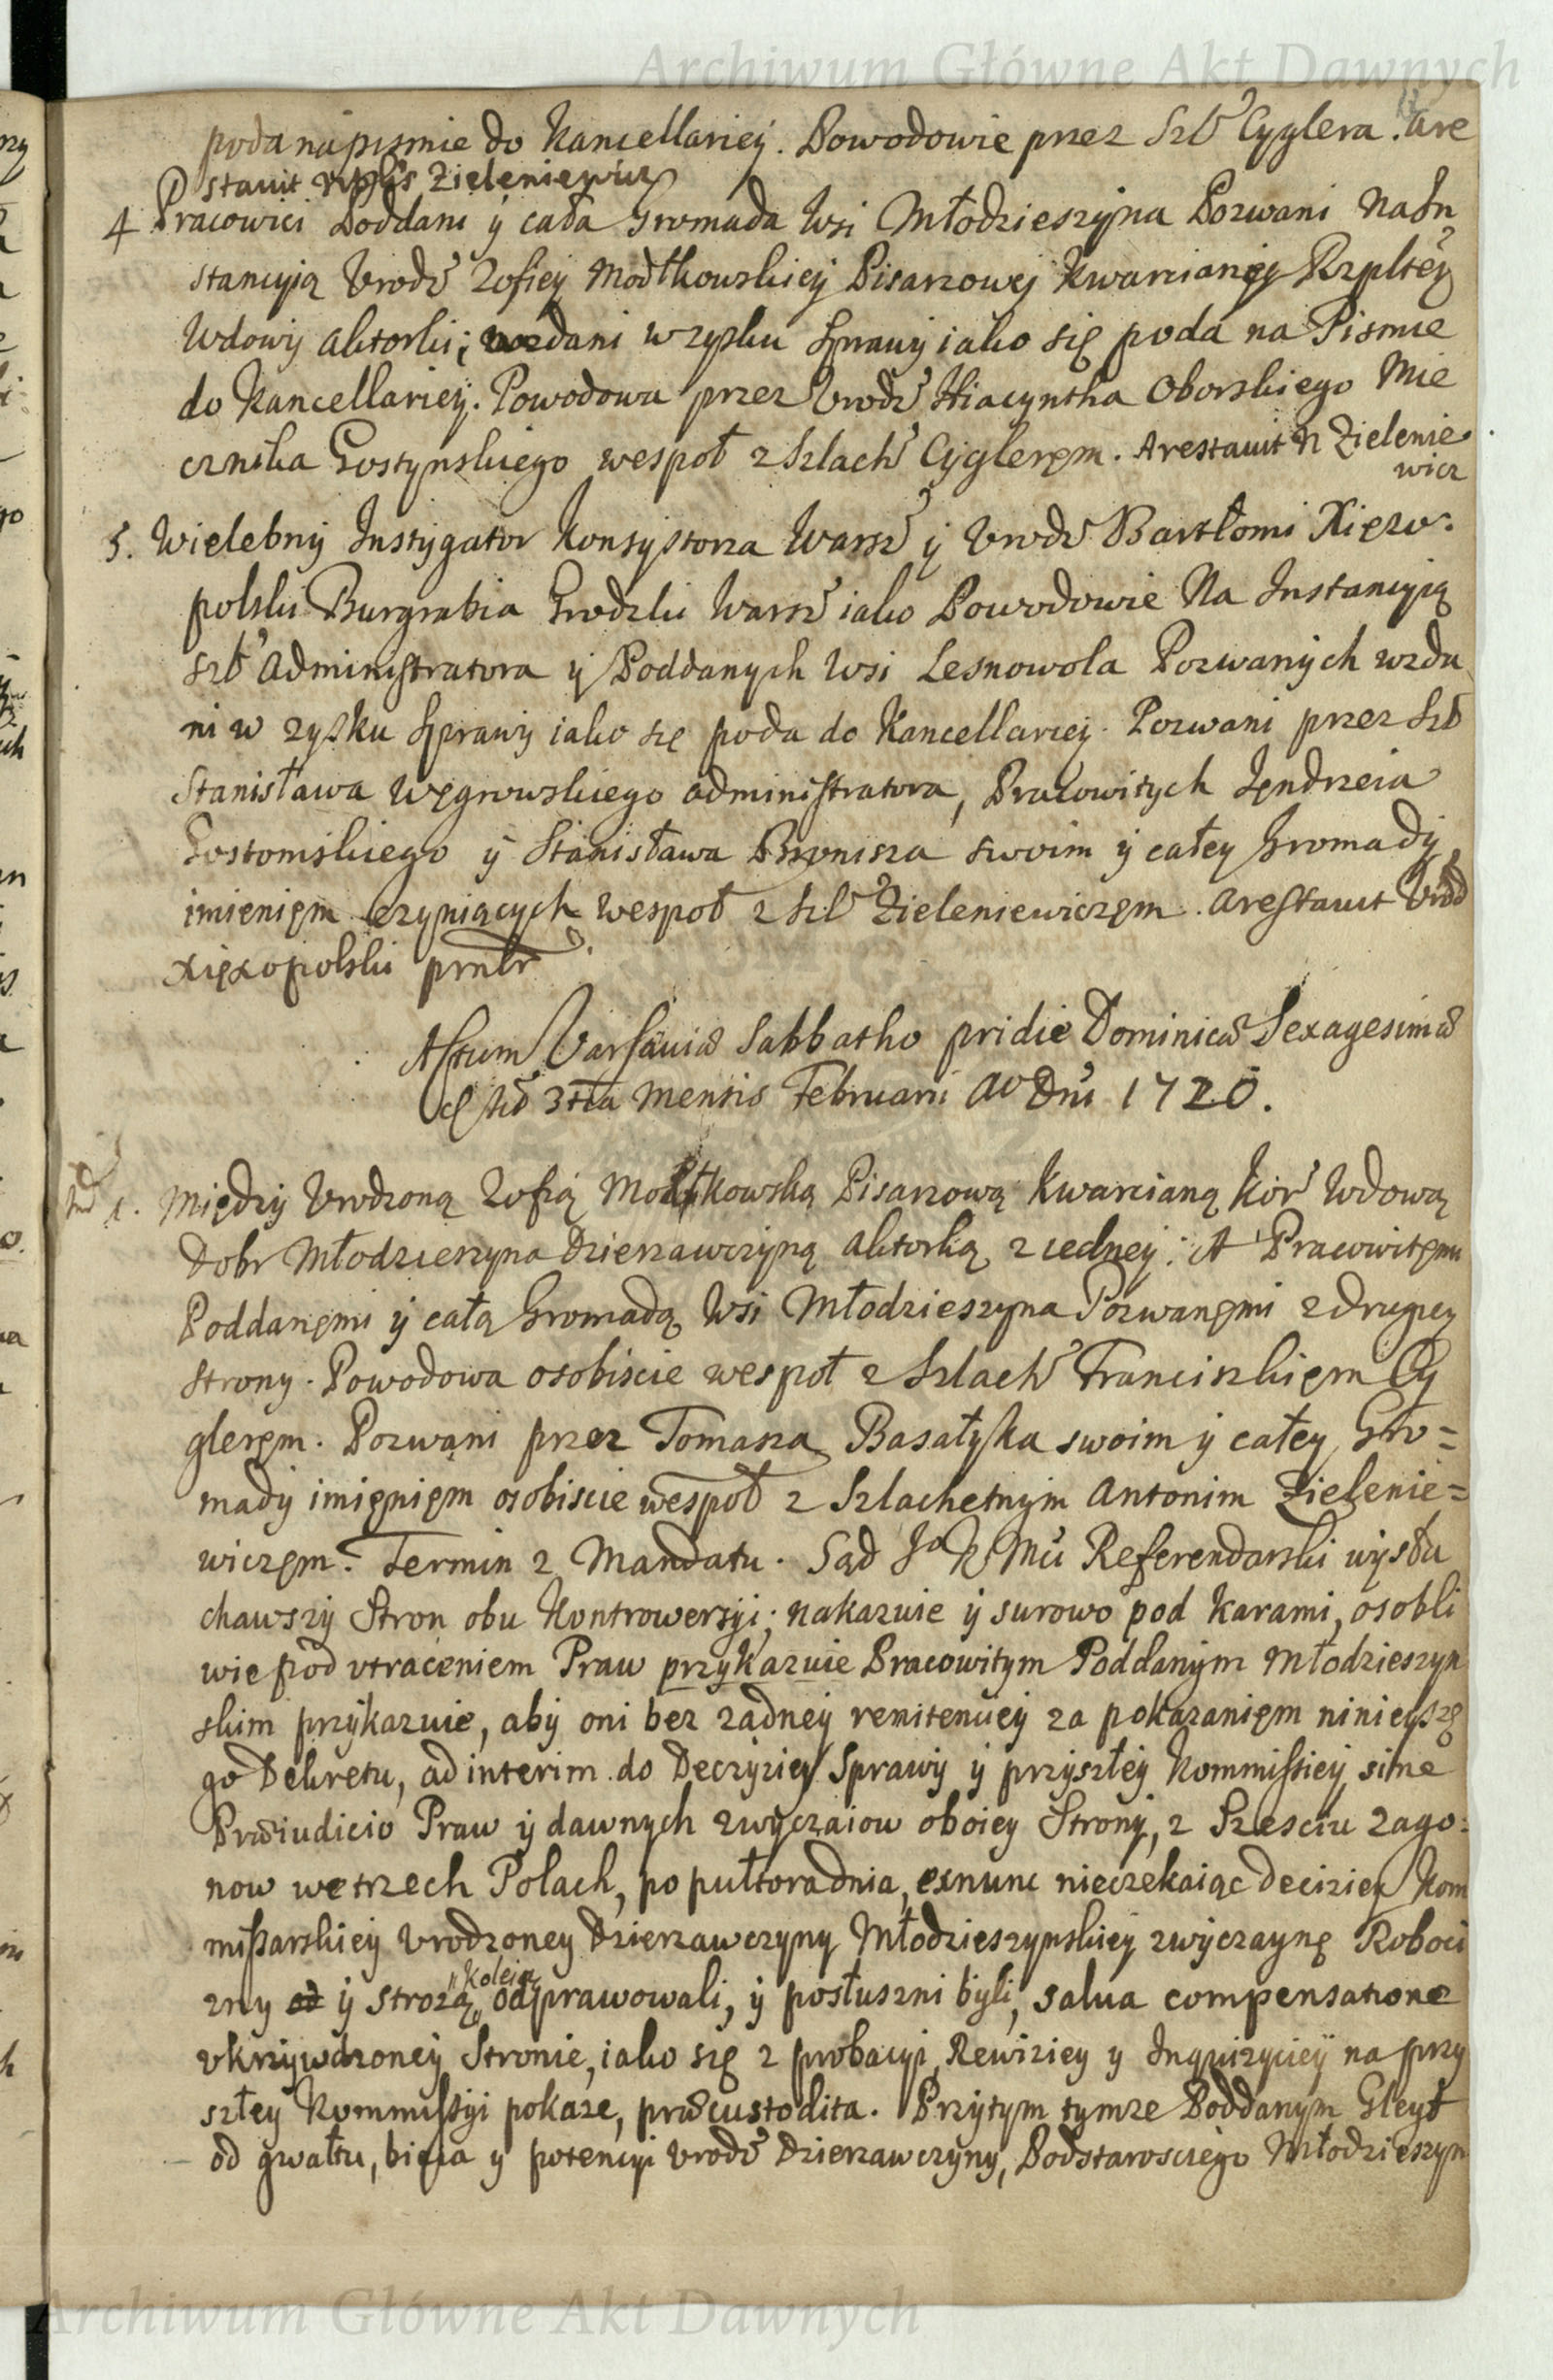 Archiwum Główne Akt Dawnych
poda na pismie do Kancellariey. Powodowie przez Szl Cyglera. are
stauit Nblis Zieleniewicz
4 Pracowici Poddani y cała Gromada Wsi Młodzieszyna Pozwani Na In
stancyią Vrodz Zofiey Modłkowskiey Pisarzowej Kwarcianej Rzpltey
Wdowy aktorki; wzdani w zysku Sprawy iako się poda na Pismie
do Kancellariey. Powodowa przez Vrodz Hiacyntha Oborskiego Mie
cznika Gostynskiego wespoł z Szlach Cyglerem. Arestauit N Zielenie
wicz
5. Wielebny Instygator Konsystorza Warsz y Vrodz Bartłomi Xięzo:
polski Burgrabia Grodzki Warsz iako Powodowie Na Instancyią
Szl Administratora y Poddanych Wsi Lesnowola Pozwanych wzda
ni w zysku Sprawy iako się poda do Kancellariey. Pozwani przez Szl
Stanisława Węgrowskiego administratora, Pracowitych Jędrzeia
Gostomskiego y Stanisława Bronisza swoim y całey Gromady
imieniem czyniących wespoł z Szl Zieleniewiczem. arestauit Vrod
Xięzopolski pmlr
Actum Varsaviæ Sabbatho pridie Dominicæ Sexagesimæ
3tia Mensis Februarii Ao Dni 1720.
1. Między Vrodzoną Zofią Modłkowską Pisarzową Kwarcianą Kor Wdową
Dobr Młodzieszyna Dzierzawczyną aktorką z iedney: A Pracowitemi
Poddanemi y całą Gromadą Wsi Młodzieszyna Pozwanemi z drugiey
strony. Powodowa osobiscie wespoł z Szlach Franciszkiem Cy
glerem. Pozwani przez Tomasza Basałyka swoim y całey Gro=
mady imieniem osobiscie wespoł z Szlachetnym Antonim Zielenie=
wiczem. Termin z Mandatu. Sąd JoKMci Referendarski wysłu
chawszy Stron obu Kontrowersyi; nakazuie y surowo pod karami, osobli
wie pod vtraceniem Praw przykazuie Pracowitym Poddanym Młodzieszyn
skim przykazuie, aby oni bez zadney renitencyey za pokazaniem ninieysze
go Dekretu, ad interim do Decyziey Sprawy y przyszłey Kommissiey sine
Præiudicio Praw y dawnych zwyczaiow oboiey Strony, z Szesciu Zago:
now we trzech Polach, po pułtora dnia, exnunc nieczekaiąc deciziey Kom
missarskiey Vrodzoney Dzierzawczyny Młodzieszynskiey zwyczayne Roboci
zny od y strozą "koleią" odprawowali, y posłuszni byli, salua compensatione
vkrzywdzoney Stronie, iako się z probacyi, Rewiziey y Inquizyciey na przy
szłey Kommissyi pokaze, præcustodita. Przytym tymze Poddanym Gleyt
od gwałtu, bicia y potencyi Vrodz Dzierzawczyny, Podstarosciego Młodzieszyn
Archiwum Główne Akt Dawnych